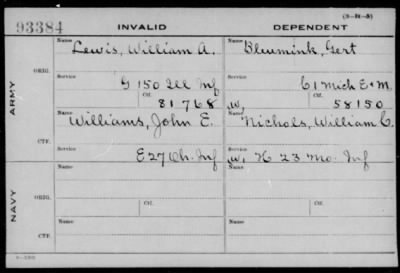 (3-31-5)
93384 INVALID DEPENDENT
ARMY
ORIG.
Name Lewis, William A.
Service G 150 Ill Inf
Ctf. 81768
Name Blumink, Gert
Service C 1 Mich E & M
Ctf. 58150
CTF.
Name Williams, John E.
Service E 27 Oh. Inf
W,
Name Nichols, William C.
Service W, K 23 Mo. Inf
NAVY
ORIG.
Name
Service
Ctf.
Name
Service
Ctf.
CTF.
Name
Name